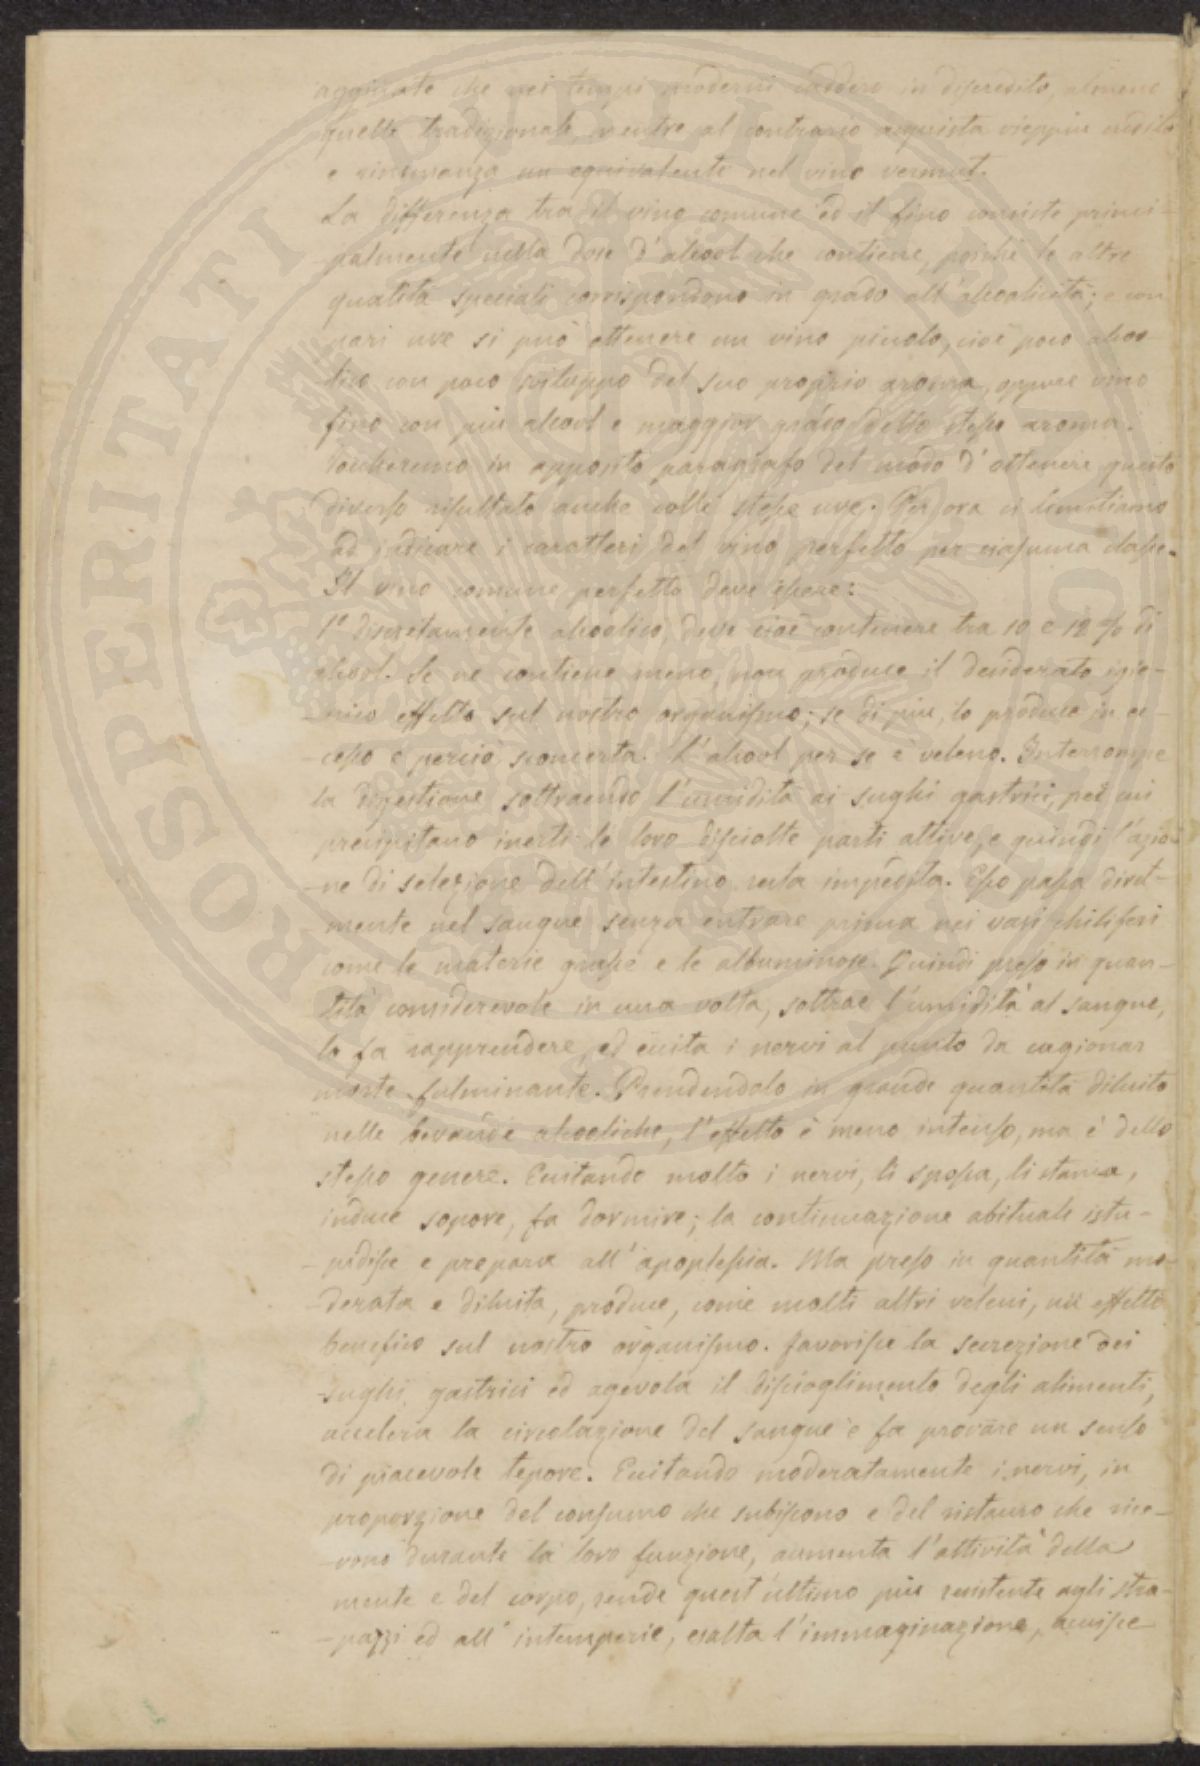 aggiunte che nei tempi moderni caddero in discredito, almeno
quelle tradizionali, mentre al contrario acquista vieppiù credito
e rinomanza un equivalente nel vino vermut.
La differenza tra il vino comune ed il fino consiste princi-
-palmente nella dose d'alcool che contiene, poiché le altre
qualità speciali corrispondono in grado all'alcoolicità; e con
pari uve si può ottenere un vino piccolo, cioè poco alcoo-
-lico con poco sviluppo del suo proprio aroma, oppure vino
fino con più alcool e maggior grado dello stesso aroma.
Toccheremo in apposito paragrafo del modo d'ottenere questo
diverso risultato anche colle stesse uve. Per ora ci limitiamo
ad indicare i caratteri del vino perfetto per ciascuna classe.
Il vino comune perfetto deve essere:
1° discretamente alcoolico, deve cioè contenere tra 10 e 12 % di
alcool. Se ne contiene meno, non produce il desiderato igie-
-nico effetto sul nostro organismo; se di più, lo produce in ec-
-cesso e perciò sconcerta. L'alcool per se è veleno. Interrompe
la digestione sottraendo l'umidità ai sughi gastrici, per cui
precipitano inerti le loro disciolte parti attive, e quindi l'azio-
-ne di selezione dell'intestino resta impedita. Esso passa diret-
mente nel sangue senza entrare prima nei vasi chiliferi
come le materie grasse e le albuminose. Quindi preso in quan-
tità considerevole in una volta, sottrae l'umidità al sangue,
lo fa rapprendere, ed eccita i nervi al punto da cagionar
morte fulminante. Prendendolo in grande quantità diluito
nelle bevande alcooliche, l'effetto è meno intenso, ma è dello
stesso genere. Eccitando molto i nervi, li spossa, li stanca,
induce sopore, fa dormire; la continuazione abituale istu-
-pidisce e prepara all'apoplessia. Ma preso in quantità mo-
-derata e diluita, produce, come molti altri veleni, un effetto
benefico sul nostro organismo. Favorisce la secrezione dei
sughi gastrici ed agevola il discioglimento degli alimenti,
accelera la circolazione del sangue e fa provare un senso
di piacevole tepore. Eccitando moderatamente i nervi, in
proporzione del consumo che subiscono e del ristauro che rice-
-vono durante la loro funzione, aumenta l'attività della
mente e del corpo, rende quest'ultimo più resistente agli stra-
-pazzi ed all'intemperie, esalta l'immaginazione, acuisce
PROSPERITATI PUBLICAE AUGENDAE